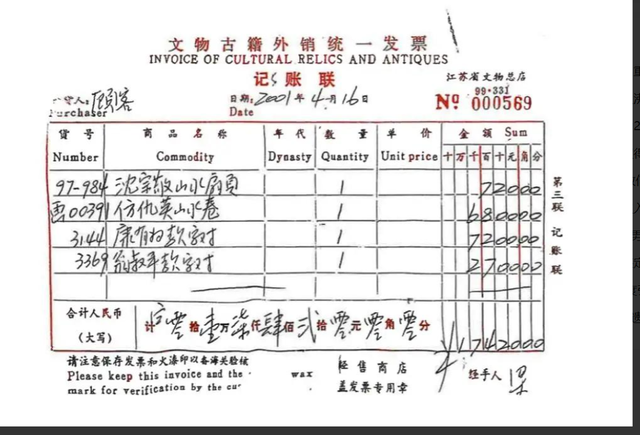 文物古籍外销统一发票
INVOICE OF CULTURAL RELICS AND ANTIQUES
记账联
江苏省文物总店
99·331
货人: 顾客 日期: 2001年4月16日 Nº 000569
Purchaser Date
货号 商品名称 年代 数量 单价 金额 Sum
Number Commodity Dynasty Quantity Unit price 十万千百十元角分
97-984 沈宗敬山水扇页 1 72000
画00391 仿仇英山水卷 1 680000
3144 康有为款字对 1 720000
3369 翁叔平款字对 1 270000
合计人民币 计 零拾壹万柒仟肆佰贰拾零元零角零分 ¥1742000
(大写)
第三联 记账联
请注意保存发票和火漆印以备海关验核
Please keep this invoice and the wax
mark for verification by the cu
经售商店
盖发票专用章
经手人 梁